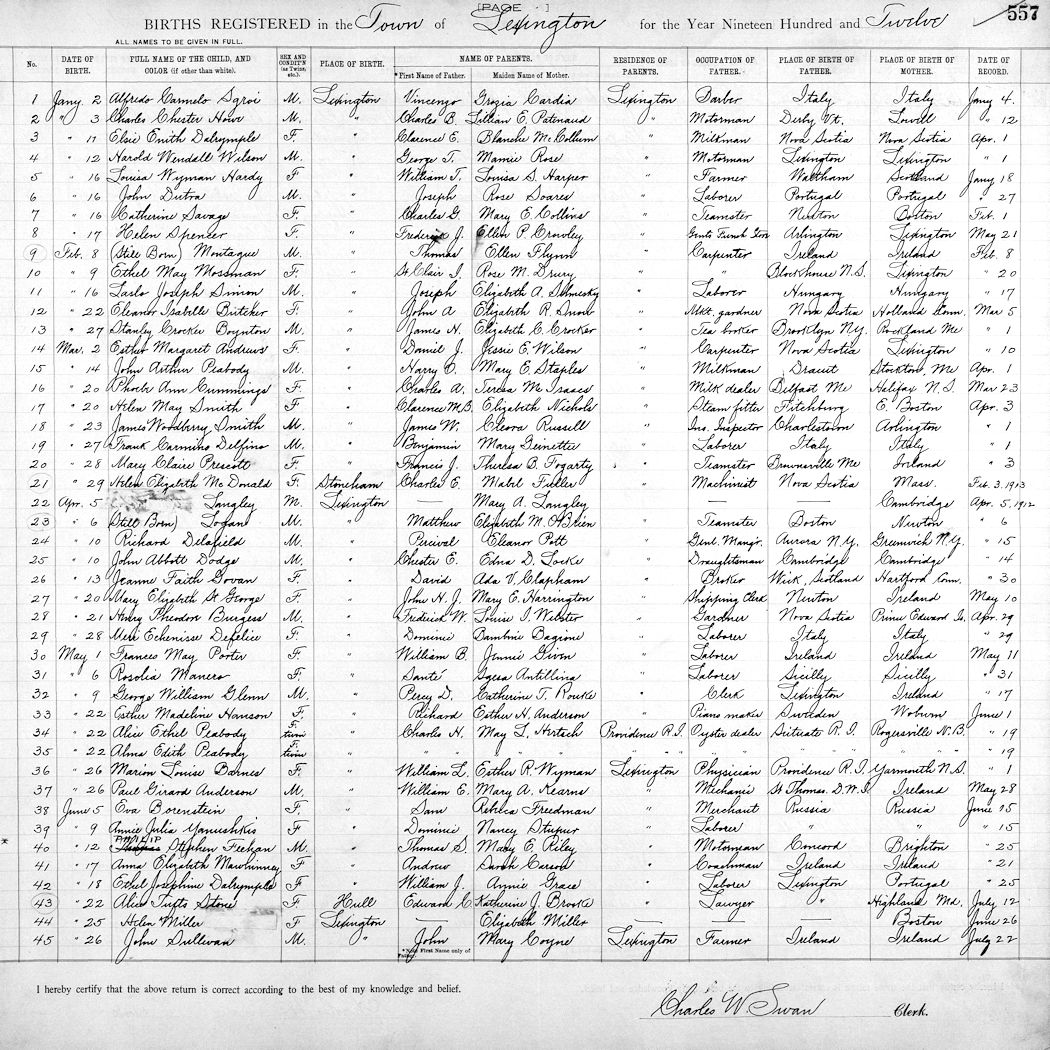 [PAGE ] 557
BIRTHS REGISTERED in the Town of Lexington for the Year Nineteen Hundred and Twelve
ALL NAMES TO BE GIVEN IN FULL.
No. DATE OF BIRTH. FULL NAME OF THE CHILD, AND COLOR (if other than white). SEX AND CONDIT'N (as Twins, etc.). PLACE OF BIRTH. NAME OF PARENTS. *First Name of Father. Maiden Name of Mother. RESIDENCE OF PARENTS. OCCUPATION OF FATHER. PLACE OF BIRTH OF FATHER. PLACE OF BIRTH OF MOTHER. DATE OF RECORD.
1 Jany. 2 Alfredo Carmelo Sgroi M. Lexington Vincenzo Grazia Cardia Lexington Barber Italy Italy Jany 4.
2 " 3 Charles Chester Howe M. " Charles B. Lillian E. Patenaud " Motorman Derby Vt. Lowell " 12
3 " 11 Elsie Enith Dalrymple F. " Clarence E. Blanche McCollum " Milkman Nova Scotia Nova Scotia Apr. 1
4 " 12 Harold Wendell Wilson M. " George T. Mamie Rose " Motorman Lexington Lexington " 1
5 " 16 Louisa Wyman Hardy F " William T. Louisa S. Harper " Farmer Waltham Scotland Jany 18
6 " 16 John Dutra M. " Joseph Rose Soares " Laborer Portugal Portugal " 27
7 " 16 Catherine Savage F. " Charles G. Mary E. Collins " Teamster Newton Boston Feb. 1
8 " 17 Helen Spencer F. " Frederick J. Ellen P. Crowley " Arlington Lexington May 21
9 Feb. 8 (Still Born) Montague M. " Thomas Ellen Flynn " Carpenter Ireland Ireland Feb. 8
10 " 9 Ethel May Mossman F. " St Clair I. Rose M. Drury " " Blockhouse N.S. Lexington " 20
11 " 16 Laslo Joseph Simon M. " Joseph Elizabeth A. " Laborer Hungary Hungary " 17
12 " 22 Eleanor Isabelle Butcher F. " John A Elizabeth R. Snow " Mkt. gardner Nova Scotia Holland Conn. Mar 5
13 " 27 Stanley Crocker Boynton M. " James H. Elizabeth C. Crocker " Tea Brooklyn N.Y. Rockland Me " 1
14 Mar. 2 Esther Margaret Andrews F. " Daniel J. Jessie E. Wilson " Carpenter Nova Scotia Lexington " 10
15 " 14 John Arthur Peabody M. " Harry O. Mary E. Staples " Milkman Dracut Stockton, Me Apr. 1
16 " 20 Phoebe Ann Cummings F. " Charles A. Teresa M. Isaacs " Milk dealer Belfast Me Halifax N.S. Mar 23
17 " 20 Helen May Smith F. " Clarence M.B. Elizabeth Nichols " Steam fitter Fitchburg E. Boston Apr. 3
18 " 23 James Woodberry Smith M. " James W. Cleora Russell " Ins. Inspector Charlestown Arlington " 1
19 " 27 Frank Carmino Delfino M. " Benjamin Mary " Laborer Italy Italy " 1
20 " 28 Mary Claire Prescott F. " Francis J. Theresa B. Fogarty " Teamster Brownsville Me Ireland " 3
21 " 29 Helen Elizabeth McDonald F. Stoneham Charles E. Mabel Fuller " Machinist Nova Scotia Mass. Feb. 3. 1913
22 Apr. 5 Langley M. Lexington — Mary A. Langley — — Cambridge Apr. 5, 1912
23 " 6 (Still Born) Logan M. " Matthew Elizabeth M. O'Brien " Teamster Boston Newton " 6
24 " 10 Richard Delafield M. " Percival Eleanor Pott " Genl. Mangr. Aurora N.Y. Greenwich N.Y. " 15
25 " 10 John Abbott Dodge M. " Chester E. Edna D. Locke " Draughtsman Cambridge Cambridge " 14
26 " 13 Jeanne Faith Govan F. " David Ada V. Clapham " Broker Wick, Scotland Hartford Conn. " 30
27 " 20 Mary Elizabeth St George F. " John H. J. Mary E. Harrington " Shipping Clerk Newton Ireland May 10
28 " 21 Henry Theodore Burgess M. " Frederick W. Louise I. Webster " Gardner Nova Scotia Prince Edward Is. Apr. 29
29 " 28 Defelice F. " Dominic " Laborer Italy Italy " 29
30 May 1 Frances May Porter F. " William B. Jennie Given " Laborer Ireland Ireland May 11
31 " 6 Rosolia Manero F. " Sante Agesa Antillina " Laborer Sicilly Sicilly " 31
32 " 9 George William Glenn M. " Percy D. Catherine T. Rourke " Clerk Lexington Ireland " 17
33 " 22 Esther Madeline Hanson F. " Richard Esther H. Anderson " Piano maker Sweden Woburn June 1
34 " 22 Alice Ethel Peabody F. twin " Charles H. May L. Hirtsch Providence R.I. Oyster dealer Scituate R.I. Rogersville N.B. " 19
35 " 22 Alma Edith Peabody F. twin " " " " " " " " 19
36 " 26 Marion Louise Barnes F. " William L. Esther R. Wyman Lexington Physician Providence R.I. Yarmouth N.S. " 1
37 " 26 Paul Girard Anderson M. " William E. Mary A. Kearns " Mechanic St Thomas. D.W.I. Ireland May 28
38 June 5 Eva Borenstein F. " Sam Rebeca Freedman " Merchant Russia Russia June 15
39 " 9 Annie Julia Yanushkis F " Dominic Nancy Stupur " Laborer " " " 15
* 40 " 12 PHILLIP Stephen Feehan M " Thomas S. Mary E. Riley " Motorman Concord Brighton " 25
41 " 17 Anna Elizabeth Mawhinney F " Andrew Sarah Carson " Coachman Ireland Ireland " 21
42 " 18 Ethel Josephine Dalrymple F " William J. Annie Grace " Laborer Lexington Portugal " 25
43 " 22 Alice Tufts Stone F. Hull Edward C. Katherine J. Brooke " Lawyer " Highland Md. July 12
44 " 25 Helen Miller F. Lexington — Elizabeth Miller — — Boston June 26
45 " 26 John Sullivan M. " John Mary Coyne Lexington Farmer Ireland Ireland July 22
*Note First Name only of Father.
I hereby certify that the above return is correct according to the best of my knowledge and belief.
Charles W. Swan Clerk.